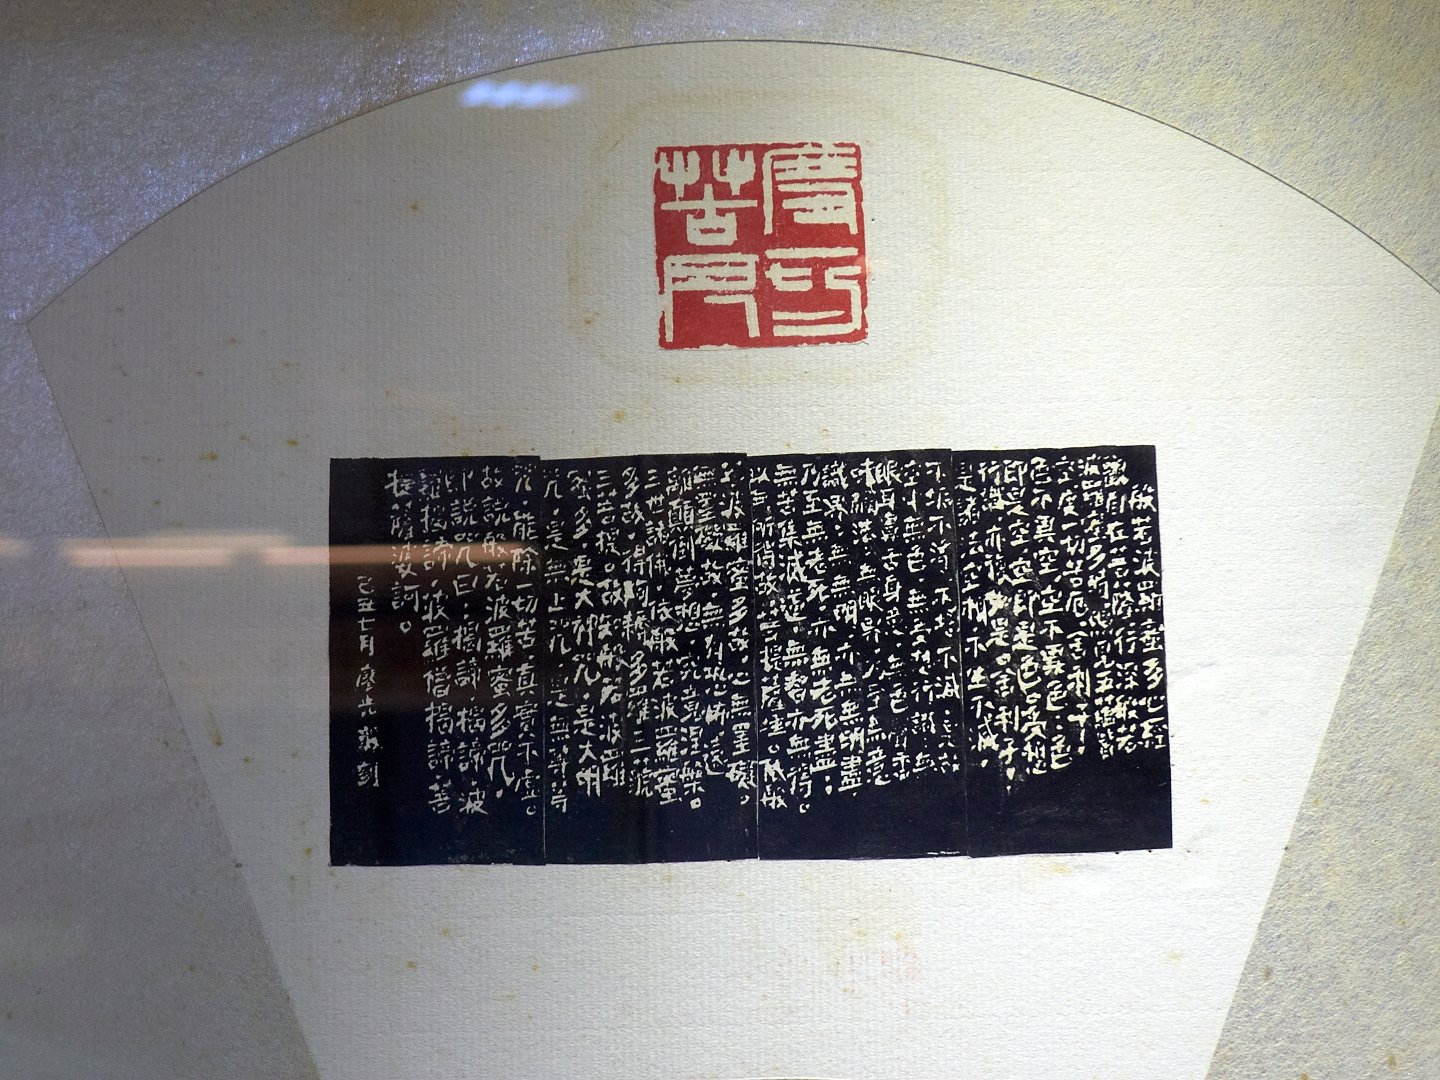 度一切
苦厄
般若波羅蜜多心經
觀自在菩薩。行深般若
波羅蜜多時。照見五蘊皆
空。度一切苦厄。舍利子。
色不異空。空不異色。色
即是空。空即是色。受想
行識。亦復如是。舍利子。
是諸法空相。不生不滅。
不垢不淨。不增不減。是故
空中無色。無受想行識。無
眼耳鼻舌身意。無色聲香
味觸法。無眼界。乃至無意
識界。無無明。亦無無明盡。
乃至無老死。亦無老死盡。
無苦集滅道。無智亦無得。
以無所得故。菩提薩埵。依般
若波羅蜜多故。心無罣礙。
無罣礙故。無有恐怖。遠
離顛倒夢想。究竟涅槃。
三世諸佛。依般若波羅蜜
多故。得阿耨多羅三藐
三菩提。故知般若波羅
蜜多。是大神咒。是大明
咒。是無上咒。是無等等
咒。能除一切苦。真實不虛。
故說般若波羅蜜多咒。
即說咒曰。揭諦。揭諦。波
羅揭諦。波羅僧揭諦。菩
提薩婆訶。
己丑七月 廖 刻